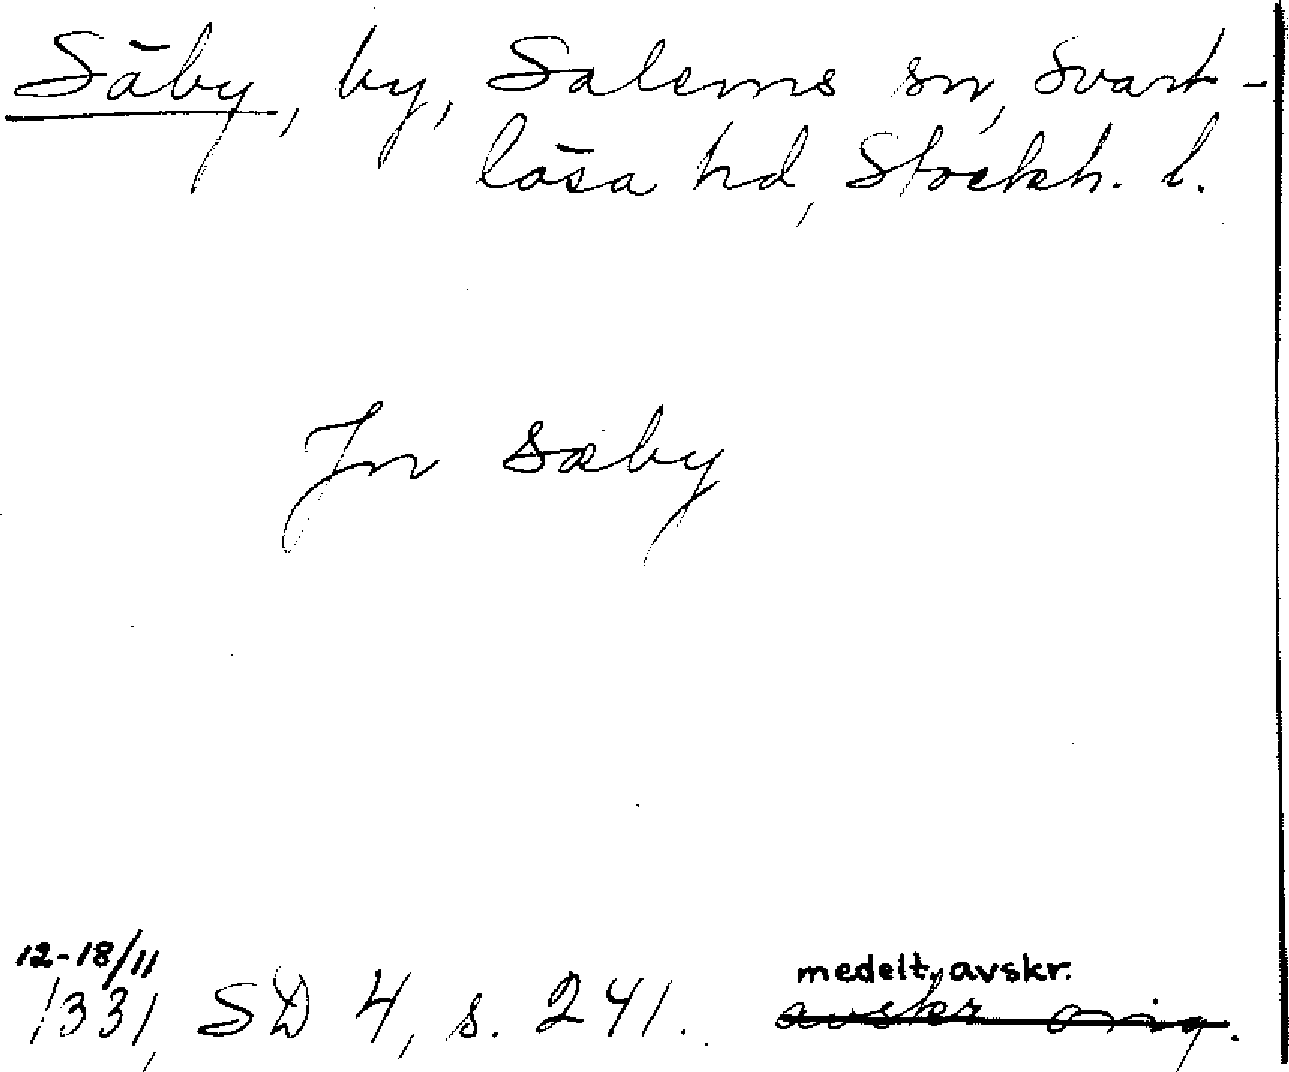 Säby, by, Salems sn, Svart-
lösa hd, Stockh. l.
In Sæby
12-18/11
1331, SD 4, s. 241.
medelt. avskr.
avskr orig.